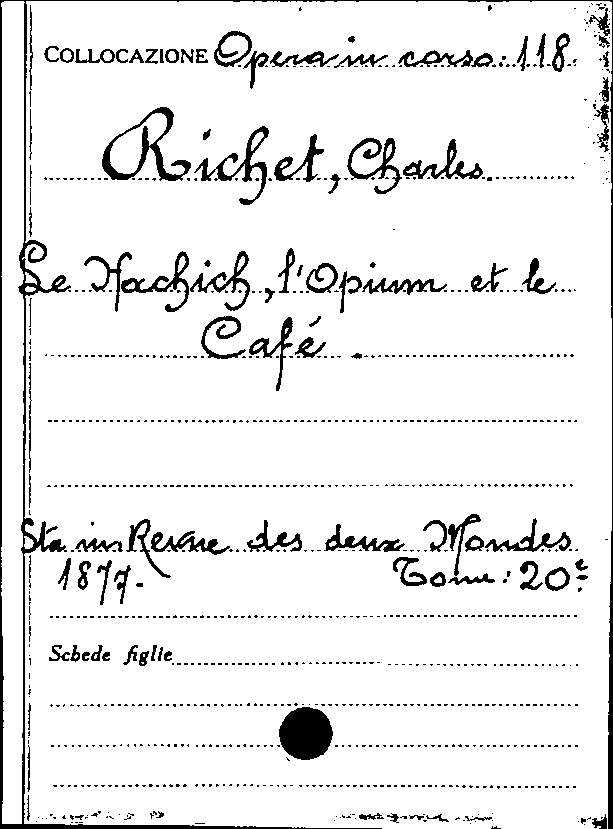 COLLOCAZIONE Opera in corso: 118.
Richet, Charles.
Le Hachich, l'Opium et le
Café.
Sta in Revue des deux Mondes
1877. Tome: 20e
Schede figlie